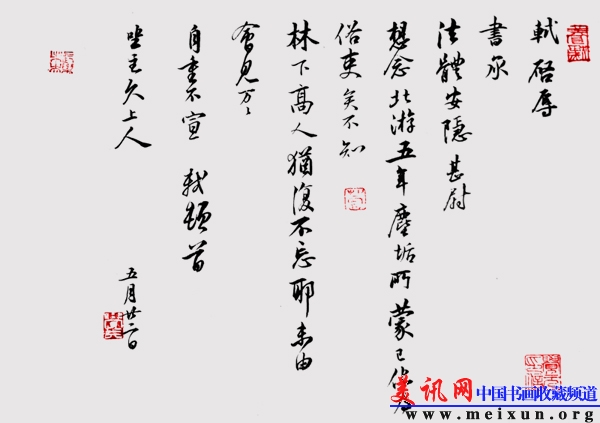 軾啓辱
書承
法體安隱甚尉
想念北游五年塵垢所蒙已化
俗吏矣不知
林下高人猶復不忘耶未由
會見万〻
自重不宣 軾頓首
坐主久上人
五月廿二日
美讯网 中国书画收藏频道
www.meixun.org